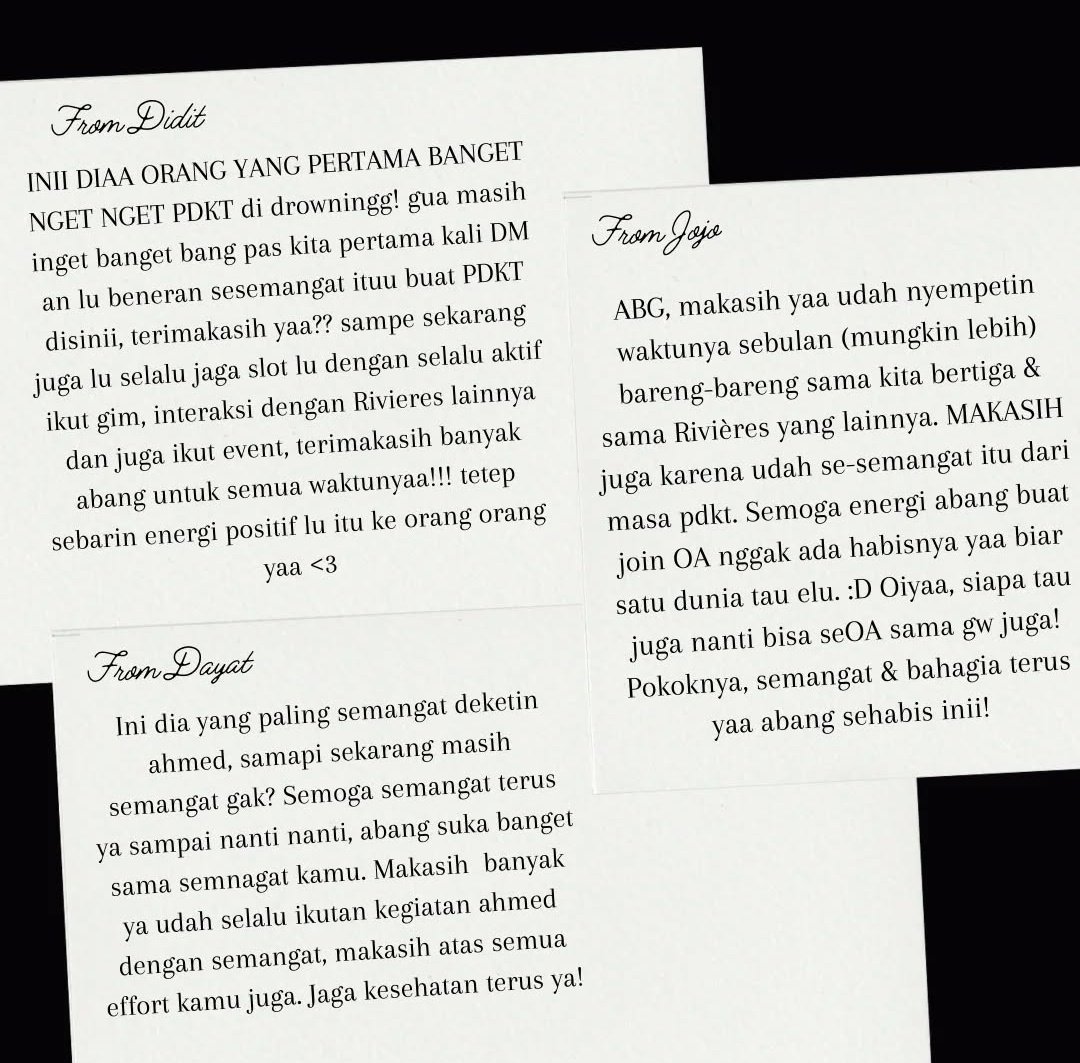 From Didit
INII DIAA ORANG YANG PERTAMA BANGET
NGET NGET PDKT di drowningg! gua masih
inget banget bang pas kita pertama kali DM
an lu beneran sesemangat ituu buat PDKT
disinii, terimakasih yaa?? sampe sekarang
juga lu selalu jaga slot lu dengan selalu aktif
ikut gim, interaksi dengan Rivieres lainnya
dan juga ikut event, terimakasih banyak
abang untuk semua waktunyaa!!! tetep
sebarin energi positif lu itu ke orang orang
yaa <3
From Jojo
ABG, makasih yaa udah nyempetin
waktunya sebulan (mungkin lebih)
bareng-bareng sama kita bertiga &
sama Rivières yang lainnya. MAKASIH
juga karena udah se-semangat itu dari
masa pdkt. Semoga energi abang buat
join OA nggak ada habisnya yaa biar
satu dunia tau elu. :D Oiyaa, siapa tau
juga nanti bisa seOA sama gw juga!
Pokoknya, semangat & bahagia terus
yaa abang sehabis inii!
From Dayat
Ini dia yang paling semangat deketin
ahmed, samapi sekarang masih
semangat gak? Semoga semangat terus
ya sampai nanti nanti, abang suka banget
sama semnagat kamu. Makasih  banyak
ya udah selalu ikutan kegiatan ahmed
dengan semangat, makasih atas semua
effort kamu juga. Jaga kesehatan terus ya!